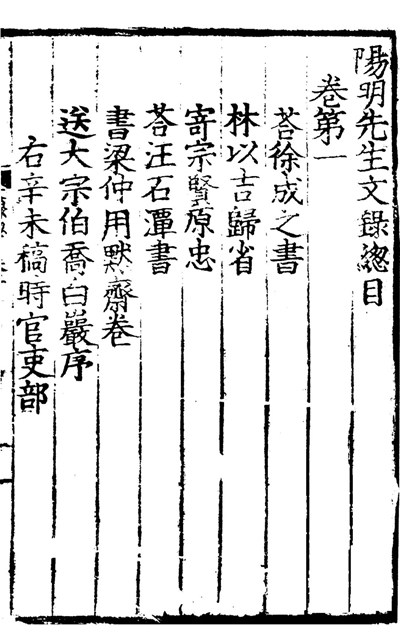 陽明先生文錄總目
卷第一
荅徐成之書
林以吉歸省
寄宗賢原忠
荅汪石潭書
書梁仲用默齋卷
送大宗伯喬白巖序
右辛未稿時官吏部